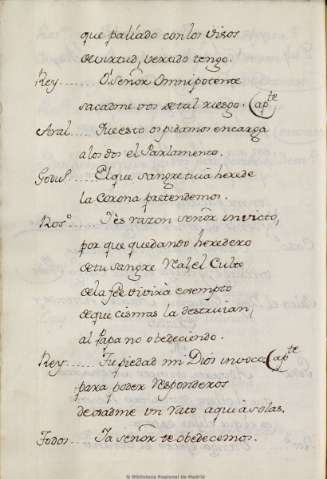 que paliado con los visos
de virtud, vertido tengo.
Rey...... O Señor Omnipotente
sacadme vos de tal riesgo. (Ap.te
Aral.... Que esto os pidamos encarga
a los dos el Parlamento.
Godul... El que sangre tuia herede
la Corona pretendemos.
Ros.o.... I es razon señor invicto,
por que quedando heredero
de tu sangre Real el Culto
de la feè vivirà esempto
de que cismas la destruian,
al Papa no obedeciendo.
Rey...... Tu piedad mi Dios invoco (Ap.te
para poder responderos
dexadme un rato aqui à solas.
Todos... Ia señor te obedecemos.
© Biblioteca Nacional de Madrid